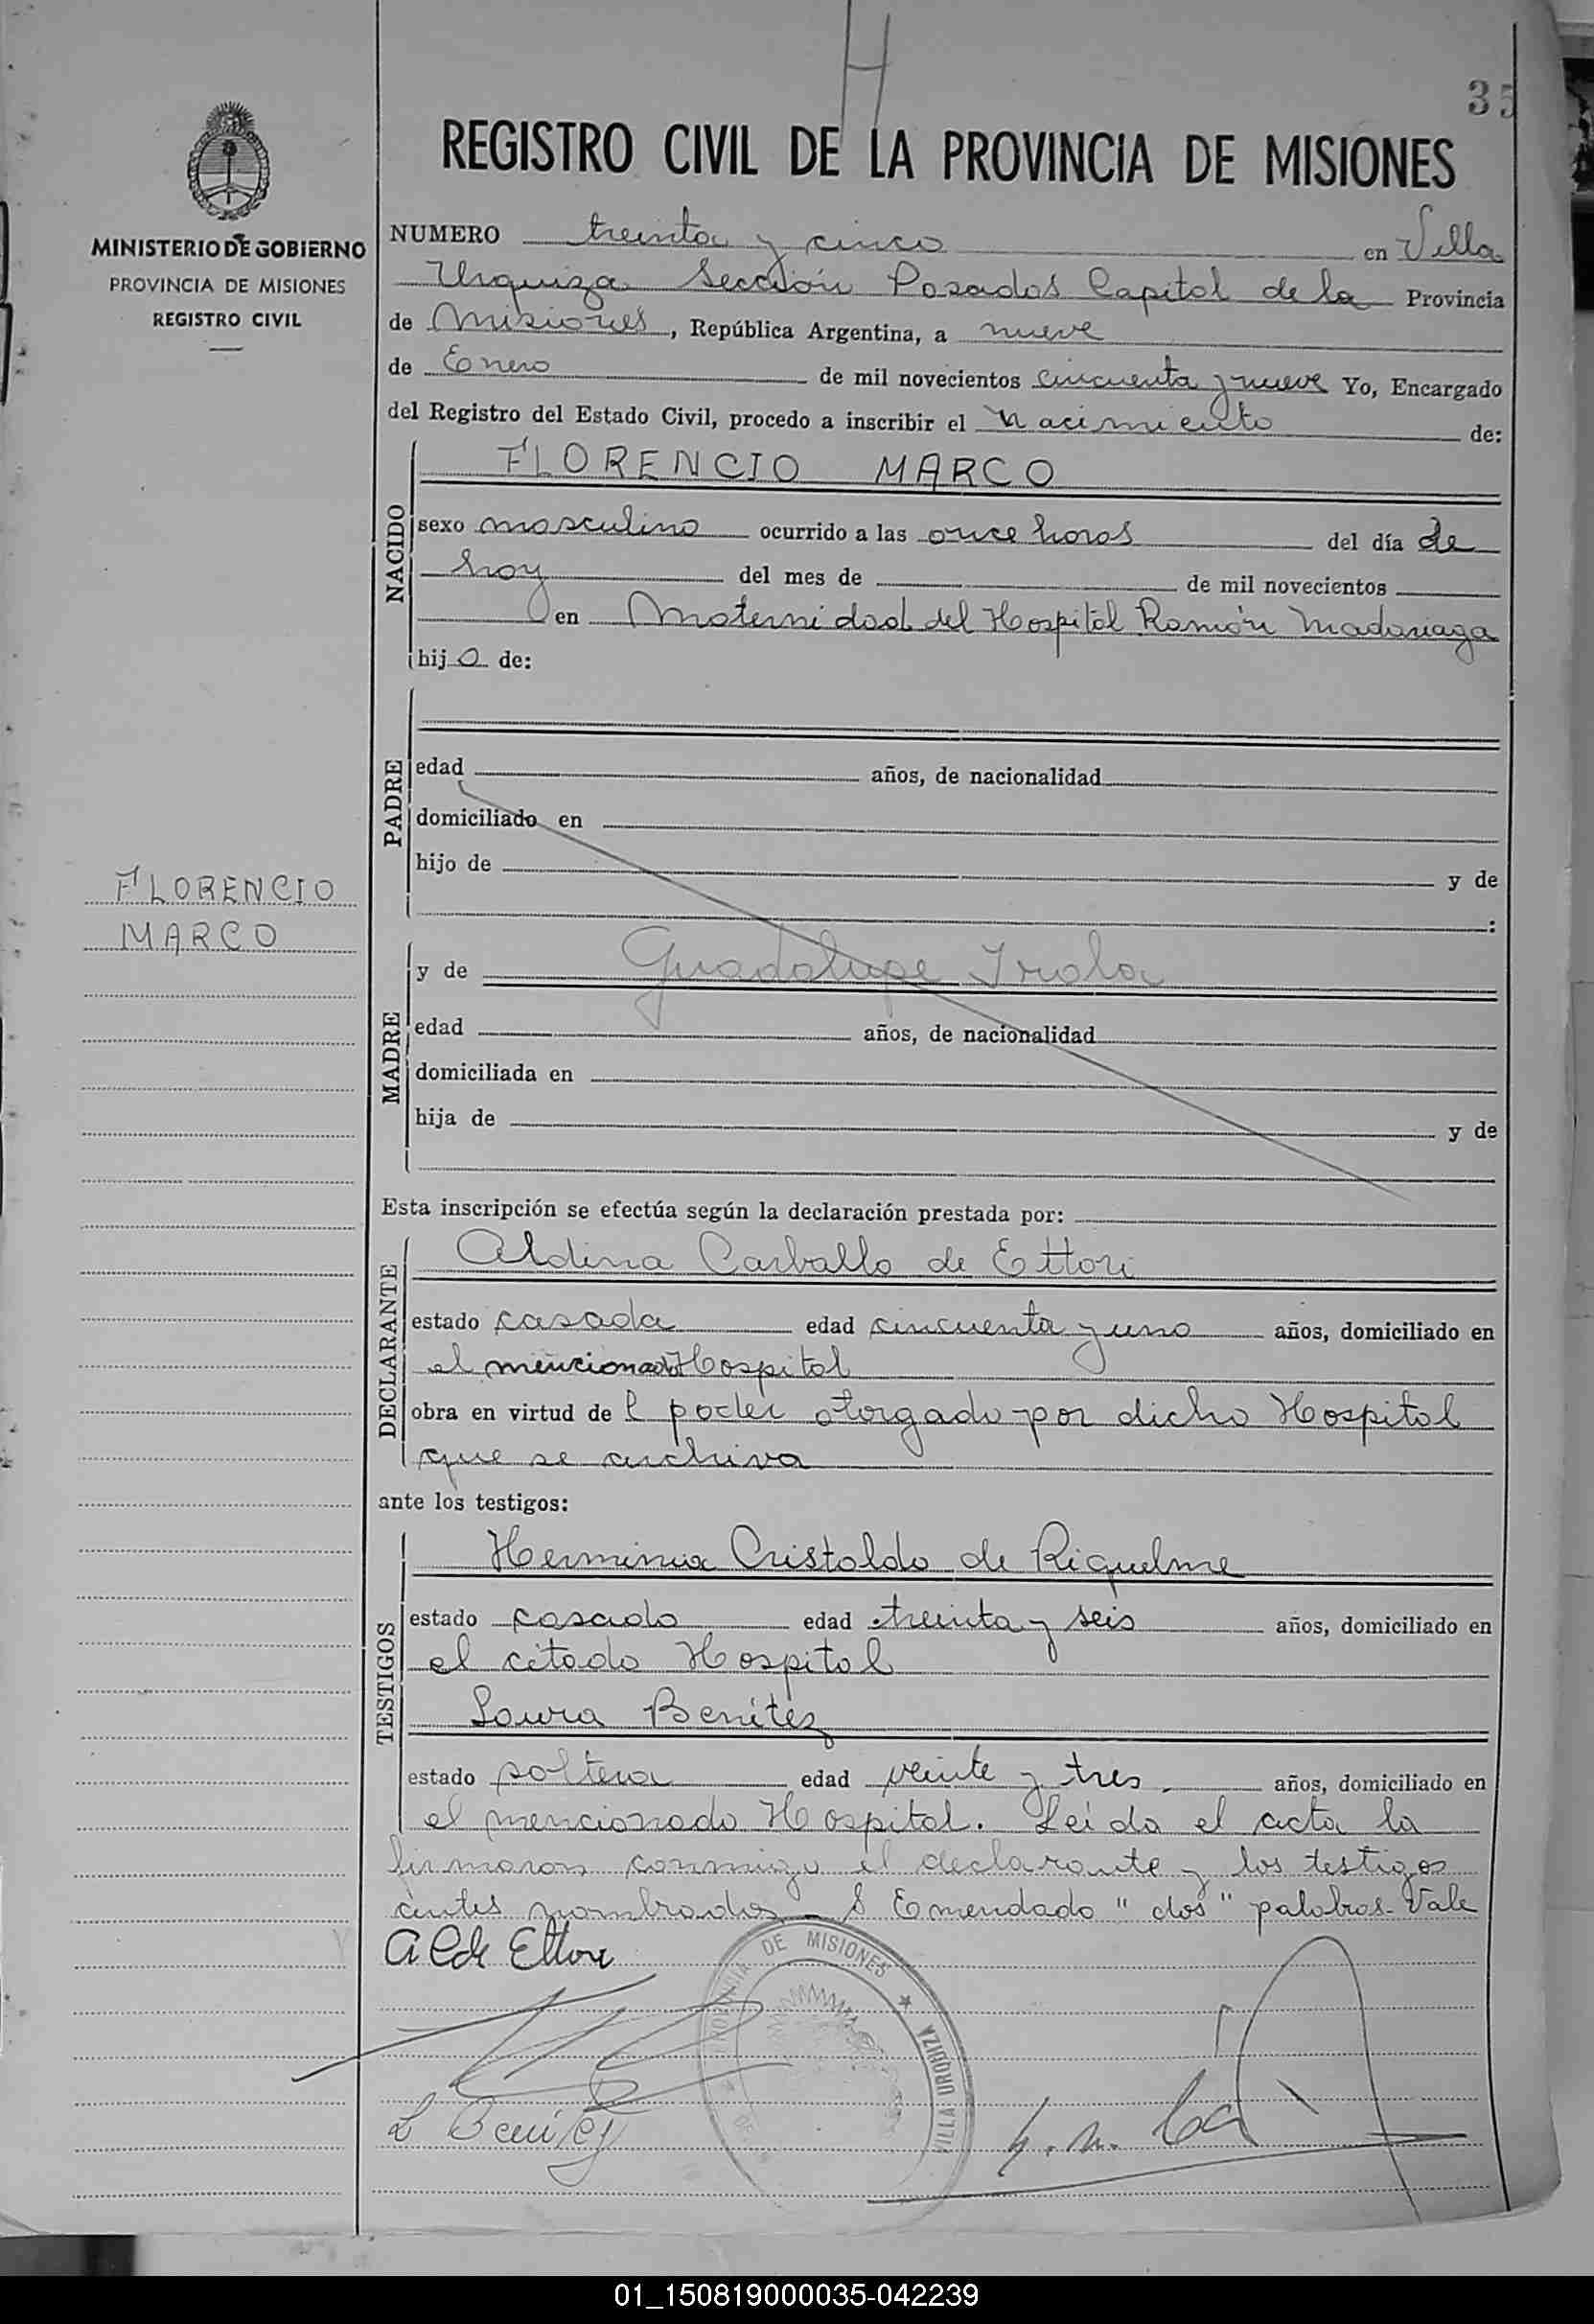 H
35
REGISTRO CIVIL DE LA PROVINCIA DE MISIONES
MINISTERIO DE GOBIERNO
PROVINCIA DE MISIONES
REGISTRO CIVIL
NUMERO treinta y cinco en Villa
Urquiza Sección Posadas Capital de la Provincia
de Misiones, República Argentina, a nueve
de Enero de mil novecientos cincuenta y nueve Yo, Encargado
del Registro del Estado Civil, procedo a inscribir el nacimiento de:
NACIDO
FLORENCIO MARCO
sexo masculino ocurrido a las once horas del día de
hoy del mes de de mil novecientos
en Maternidad del Hospital Ramón Madariaga
hijo de:
PADRE
edad años, de nacionalidad
domiciliado en
hijo de y de
:
FLORENCIO
MARCO
MADRE
y de Guadalupe Irala
edad años, de nacionalidad
domiciliada en
hija de y de
Esta inscripción se efectúa según la declaración prestada por:
DECLARANTE
Aldina Carballo de Ettori
estado casada edad cincuenta y uno años, domiciliado en
el mencionado Hospital
obra en virtud de l poder otorgado por dicho Hospital
que se archiva
ante los testigos:
TESTIGOS
Herminia Cristaldo de Riquelme
estado casada edad treinta y seis años, domiciliado en
el citado Hospital
Laura Benítez
estado soltera edad veinte y tres años, domiciliado en
el mencionado Hospital. Leida el acta la
firmaron conmigo el declarante y los testigos
antes nombrados - Emendado "dos" palabras - Vale
A C de Ettori
PROVINCIA DE MISIONES ★ VILLA URQUIZA
L Benítez
01_150819000035-042239